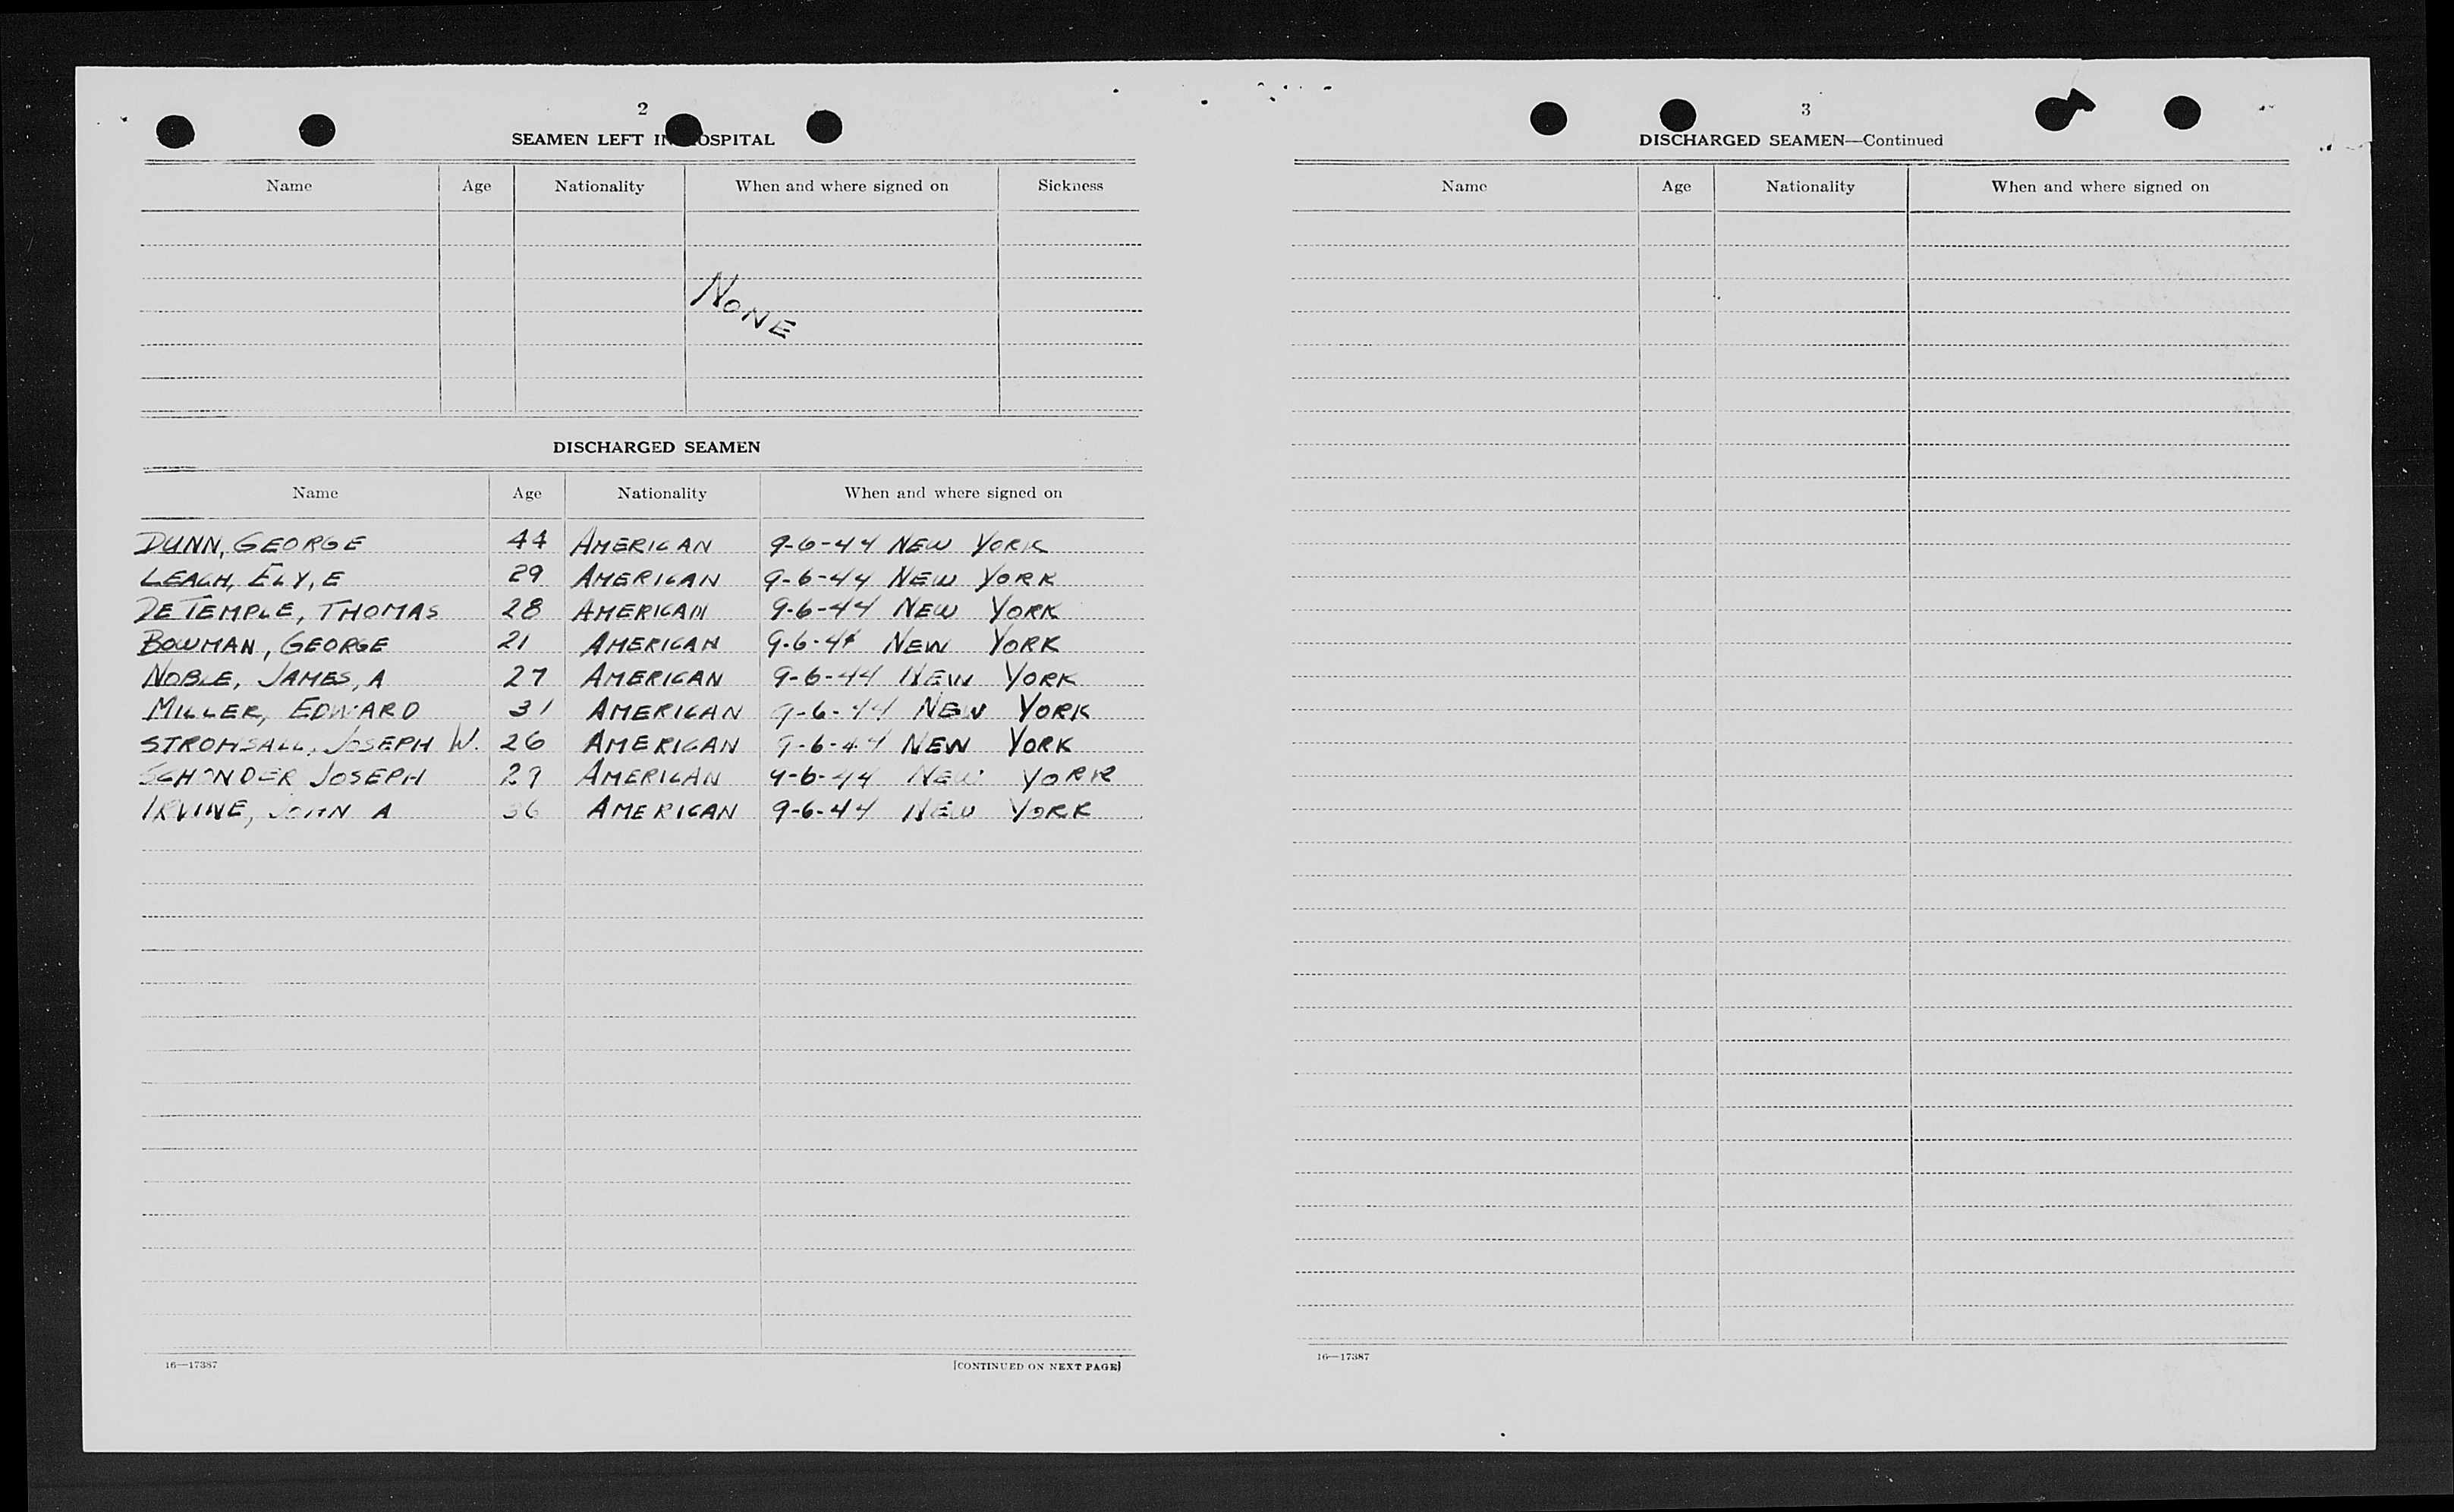 2
SEAMEN LEFT IN HOSPITAL
Name Age Nationality When and where signed on Sickness
NONE
DISCHARGED SEAMEN
Name Age Nationality When and where signed on
DUNN, GEORGE 44 AMERICAN 9-6-44 NEW YORK
LEACH, ELY, E 29 AMERICAN 9-6-44 NEW YORK
DETEMPLE, THOMAS 28 AMERICAN 9-6-44 NEW YORK
BOWMAN, GEORGE 21 AMERICAN 9-6-44 NEW YORK
NOBLE, JAMES, A 27 AMERICAN 9-6-44 NEW YORK
MILLER, EDWARD 31 AMERICAN 9-6-44 NEW YORK
JOSEPH W. 26 AMERICAN 9-6-44 NEW YORK
JOSEPH 29 AMERICAN 9-6-44 NEW YORK
IRVINE, JOHN A 36 AMERICAN 9-6-44 NEW YORK
16—17387
[CONTINUED ON NEXT PAGE]
3
DISCHARGED SEAMEN—Continued
Name Age Nationality When and where signed on
16—17387